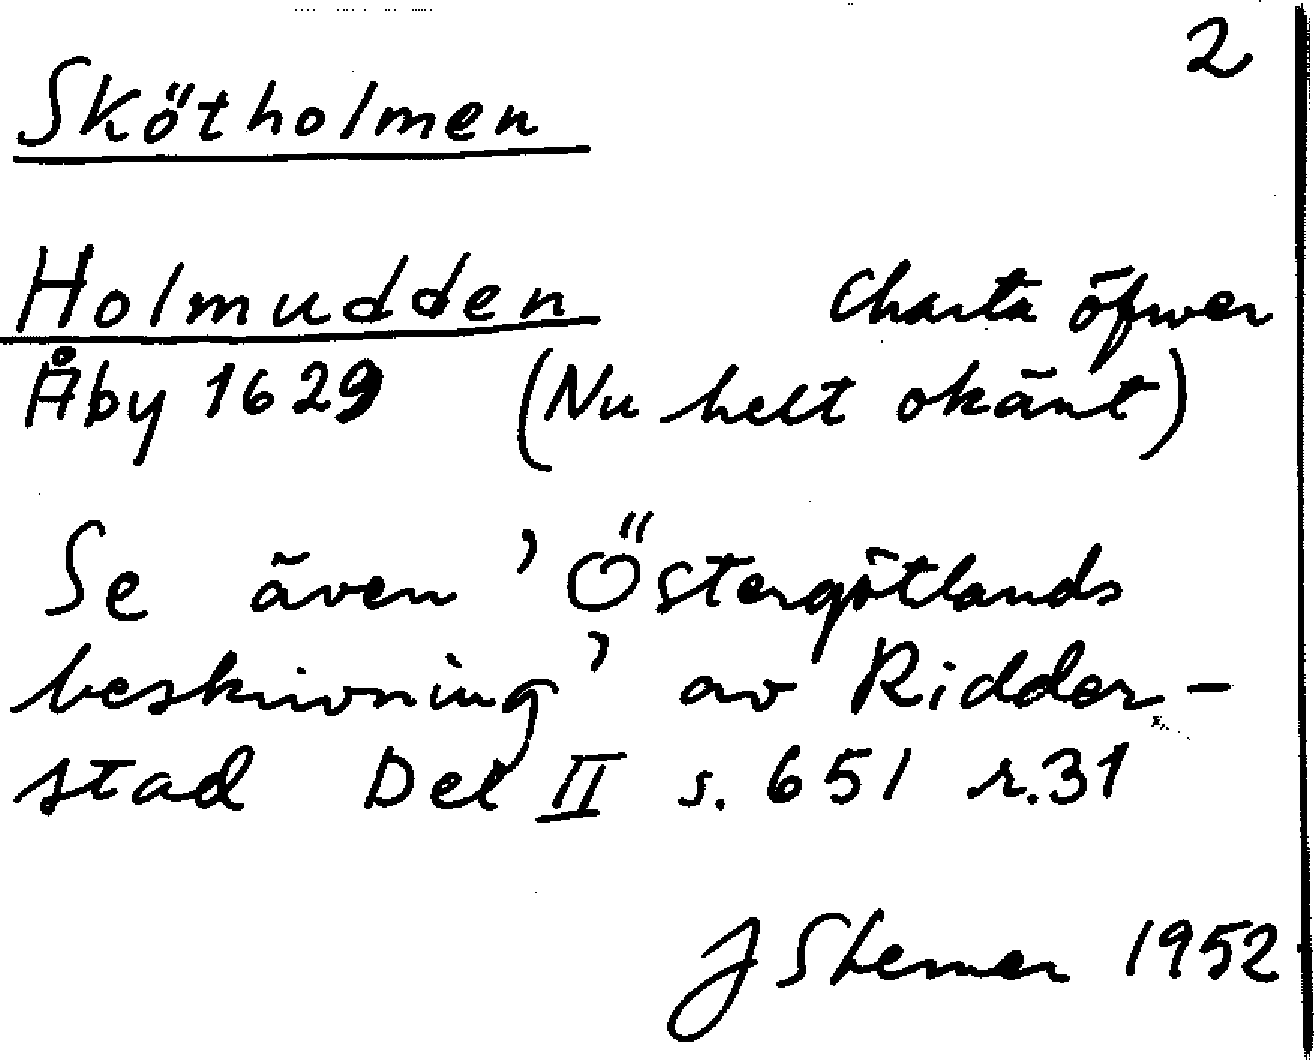 2
Skötholmen
Holmudden Charta öfwer
Åby 1629 (Nu helt okänt)
Se även 'Östergötlands
beskrivning' av Ridder-
stad Del II s. 651 r.31
J 1952